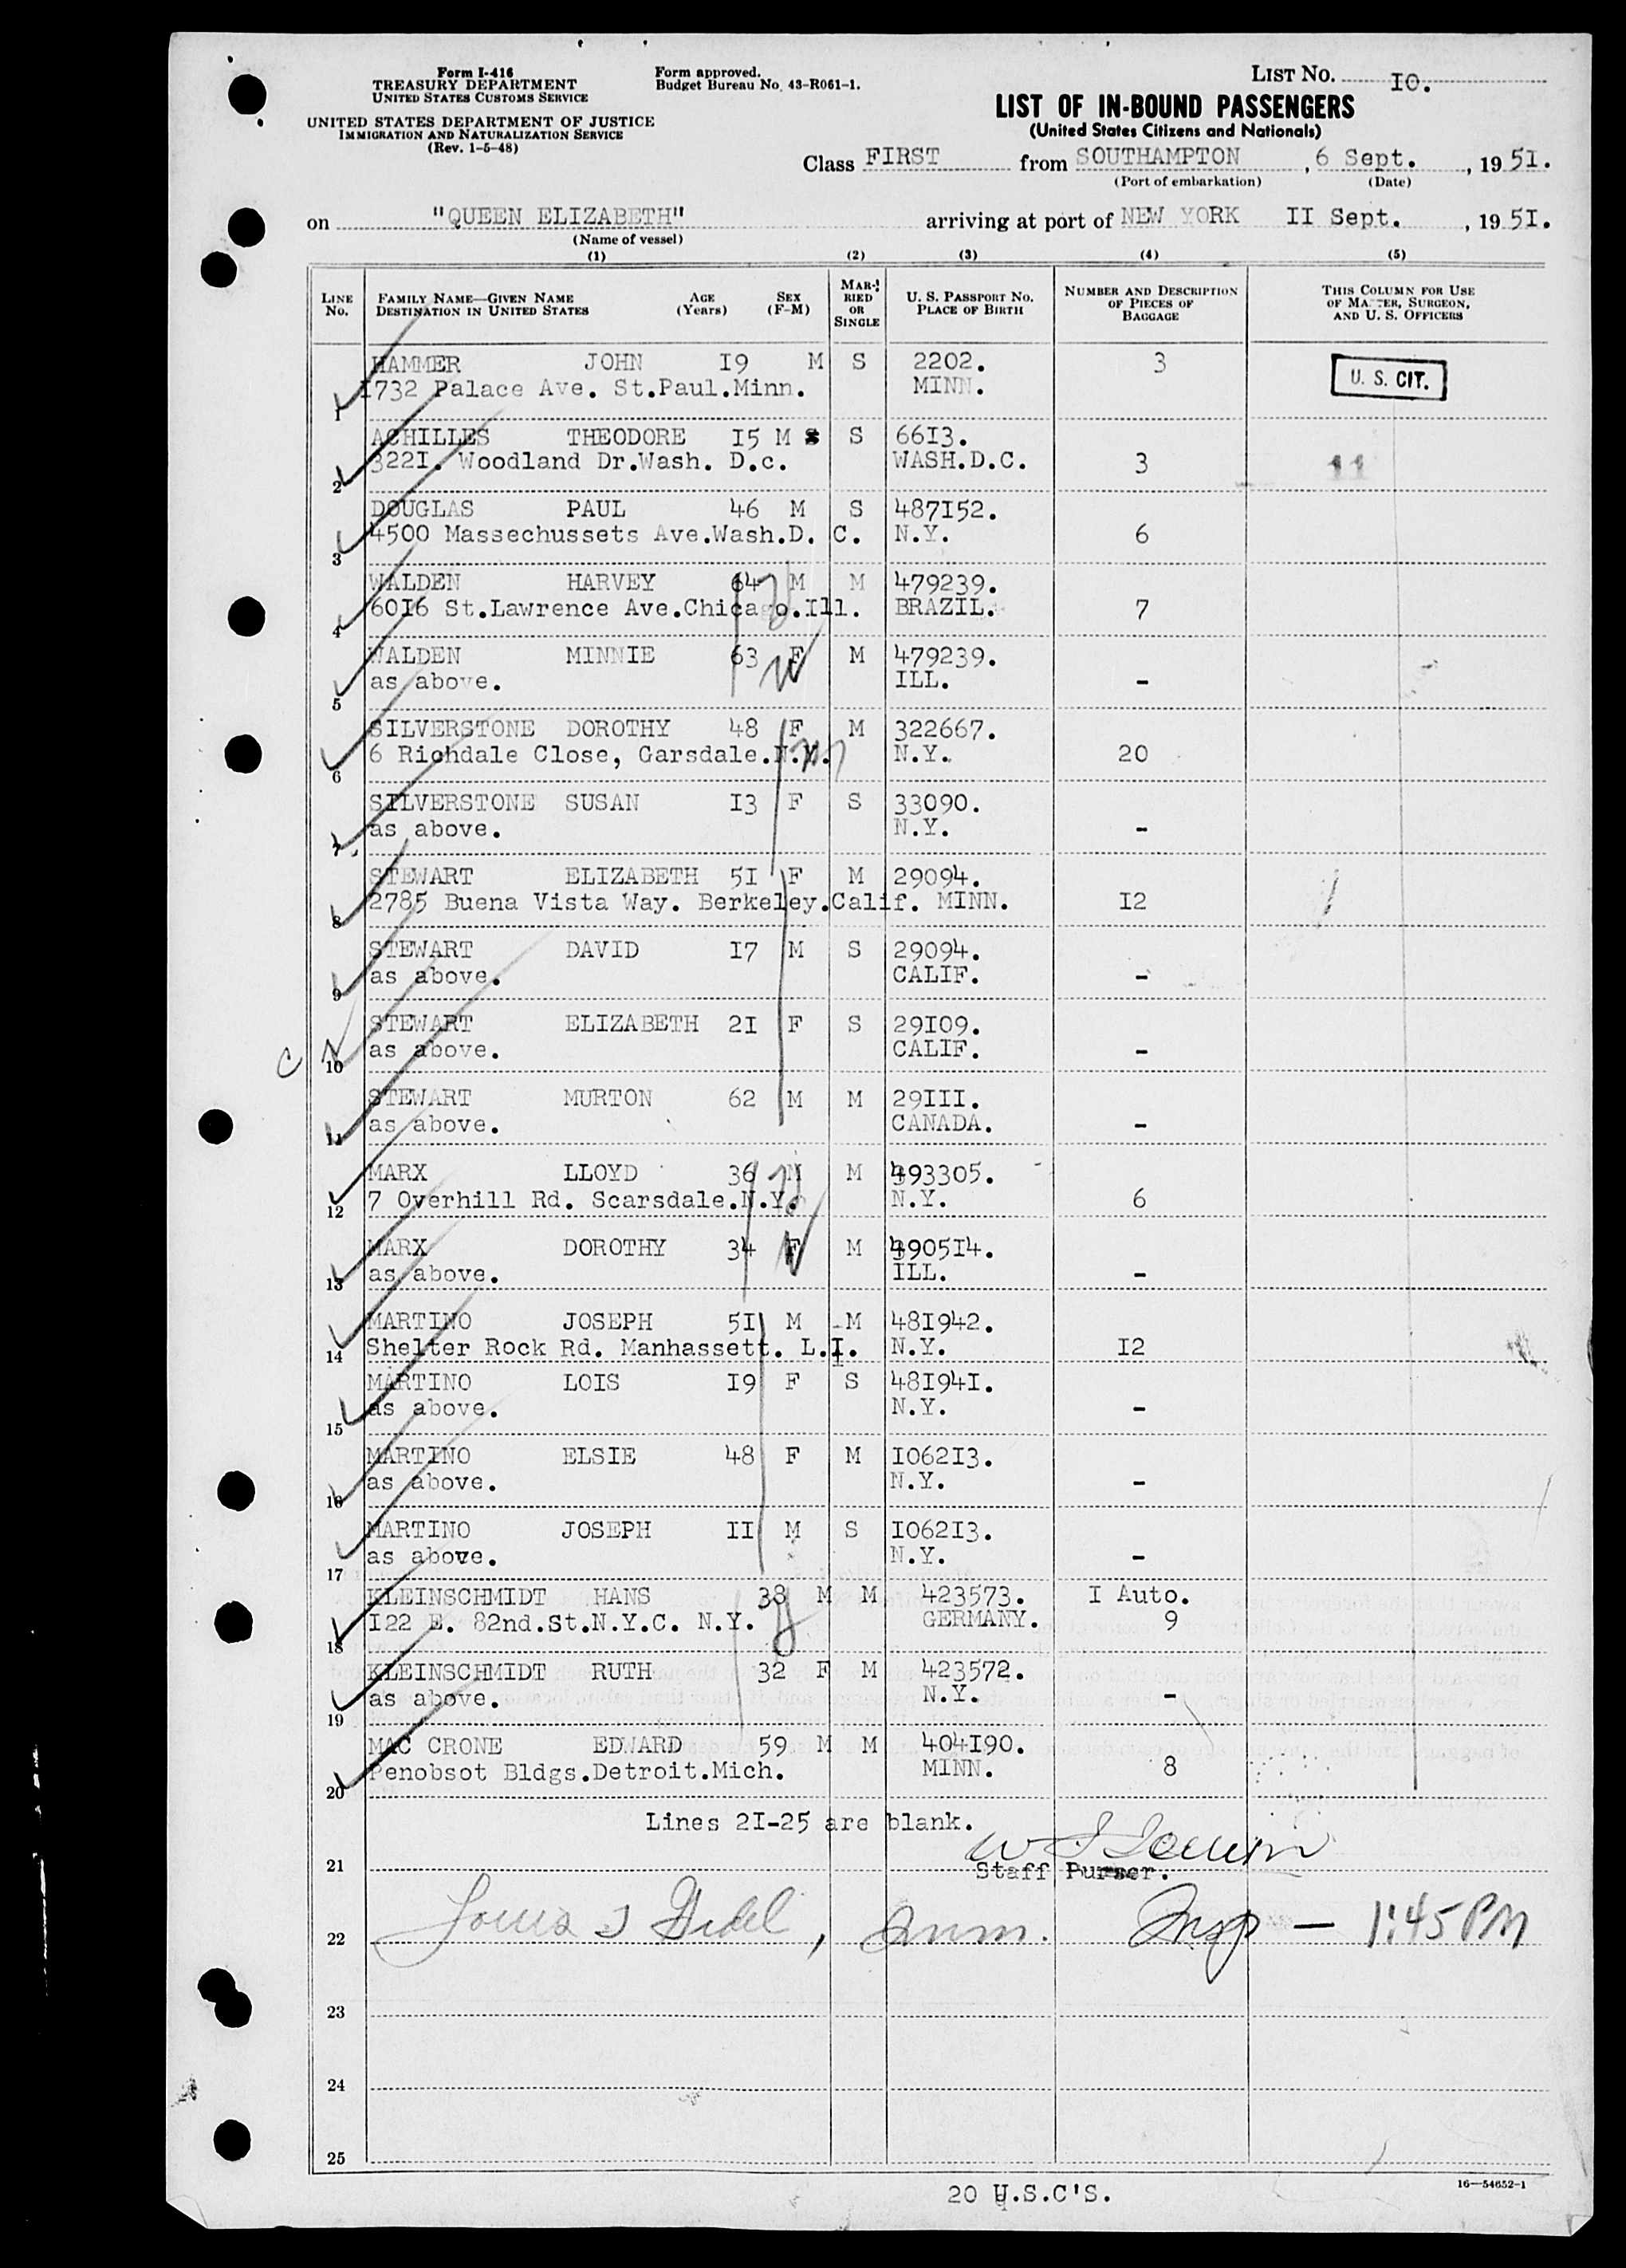 Form I-416
TREASURY DEPARTMENT
UNITED STATES CUSTOMS SERVICE
UNITED STATES DEPARTMENT OF JUSTICE
IMMIGRATION AND NATURALIZATION SERVICE
(Rev. 1-5-48)
Form approved.
Budget Bureau No. 43-R061-1.
LIST NO. IO.
LIST OF IN-BOUND PASSENGERS
(United States Citizens and Nationals)
Class FIRST from SOUTHAMPTON , 6 Sept. , 19 5I.
(Port of embarkation) (Date)
on "QUEEN ELIZABETH" arriving at port of NEW YORK II Sept. , 19 5I.
(Name of vessel)
(1) (2) (3) (4) (5)
LINE NO. FAMILY NAME—GIVEN NAME DESTINATION IN UNITED STATES AGE (Years) SEX (F-M) MARRIED OR SINGLE U. S. PASSPORT NO. PLACE OF BIRTH NUMBER AND DESCRIPTION OF PIECES OF BAGGAGE THIS COLUMN FOR USE OF MASTER, SURGEON, AND U. S. OFFICERS
HAMMER JOHN I9 M S 2202. 3 U. S. CIT.
1 I732 Palace Ave. St.Paul.Minn. MINN.
ACHILLES THEODORE I5 M S 66I3.
2 322I. Woodland Dr.Wash. D.c. WASH.D.C. 3 11
DOUGLAS PAUL 46 M S 487I52.
3 4500 Massechussets Ave.Wash.D. C. N.Y. 6
WALDEN HARVEY 64 M M 479239.
4 60I6 St.Lawrence Ave.Chicago.Ill. BRAZIL. 7
WALDEN MINNIE 63 F M 479239.
5 as above. ILL. -
SILVERSTONE DOROTHY 48 F M 322667.
6 6 Richdale Close, Garsdale.N.Y. N.Y. 20
SILVERSTONE SUSAN I3 F S 33090.
7 as above. N.Y. -
STEWART ELIZABETH 5I F M 29094.
8 2785 Buena Vista Way. Berkeley.Calif. MINN. I2
STEWART DAVID I7 M S 29094.
9 as above. CALIF. -
STEWART ELIZABETH 2I F S 29I09.
C 10 as above. CALIF. -
STEWART MURTON 62 M M 29III.
11 as above. CANADA. -
MARX LLOYD 36 M M 493305.
12 7 Overhill Rd. Scarsdale.N.Y. N.Y. 6
MARX DOROTHY 34 F M 4905I4.
13 as above. ILL. -
MARTINO JOSEPH 5I M M 48I942.
14 Shelter Rock Rd. Manhassett. L.I. N.Y. I2
MARTINO LOIS I9 F S 48I94I.
15 as above. N.Y. -
MARTINO ELSIE 48 F M I062I3.
16 as above. N.Y. -
MARTINO JOSEPH II M S I062I3.
17 as above. N.Y. -
KLEINSCHMIDT HANS 38 M M 423573. I Auto.
18 I22 E. 82nd.St.N.Y.C. N.Y. GERMANY. 9
KLEINSCHMIDT RUTH 32 F M 423572.
19 as above. N.Y. -
MAC CRONE EDWARD 59 M M 404I90.
20 Penobsot Bldgs.Detroit.Mich. MINN. 8
Lines 2I-25 are blank.
21 Staff Purser.
22 Imm. Insp — 1:45 PM
23
24
25
20 U.S.C'S.
16—54652-1